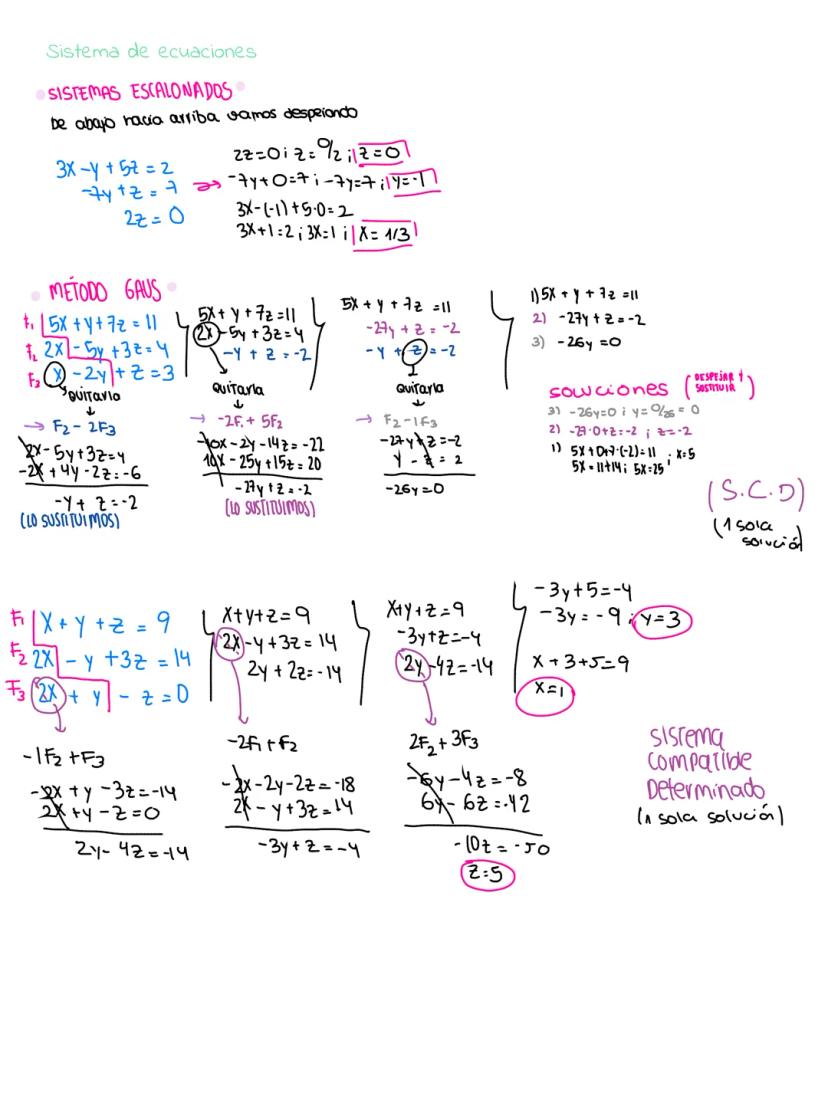 Sistema de ecuaciones
SISTEMAS ESCALONADOS
De abajo hacia arriba vamos despejando
3x - y + 5z = 2
-7y + z = 7
2z = 0
2z=0 ; z=0/2 ; z=0
-7y+0=7 ; -7y=7 ; y=-1
3x-(-1)+5·0=2
3x+1=2 ; 3x=1 ; x=1/3
MÉTODO GAUS
F₁ 5x+y+7z=11
F₂ 2x-5y+3z=4
F₃ x-2y+z=3
quitarla
→ F₂-2F₃
2x-5y+3z=4
-2x+4y-2z=-6
-y+z=-2
(LO SUSTITUIMOS)
5x+y+7z=11
2x-5y+3z=4
-y+z=-2
quitarla
→ -2F₁+5F₂
-10x-2y-14z=-22
10x-25y+15z=20
-27y+z=-2
(LO SUSTITUIMOS)
5x+y+7z=11
-27y+z=-2
-y+z=-2
quitarla
→ F₂-1F₃
-27y+z=-2
y-z=2
-26y=0
1) 5x+y+7z=11
2) -27y+z=-2
3) -26y=0
soluciones (DESPEJAR Y SUSTITUIR)
3) -26y=0 ; y=0/26=0
2) -27·0+z=-2 ; z=-2
1) 5x+0+7·(-2)=11 ; x=5
5x=11+14 ; 5x=25
(S.C.D)
(1 sola solución)
F₁ x+y+z=9
F₂ 2x-y+3z=14
F₃ 2x+y-z=0
-1F₂+F₃
-2x+y-3z=-14
2x+y-z=0
2y-4z=-14
x+y+z=9
2x-y+3z=14
2y+2z=-14
-2F₁+F₂
-2x-2y-2z=-18
2x-y+3z=14
-3y+z=-4
x+y+z=9
-3y+z=-4
2y-4z=-14
2F₂+3F₃
-6y-4z=-8
6y-6z=-42
-10z=-50
z=5
-3y+5=-4
-3y=-9 ; y=3
x+3+5=9
x=1
sistema
compatible
Determinado
(1 sola solución)